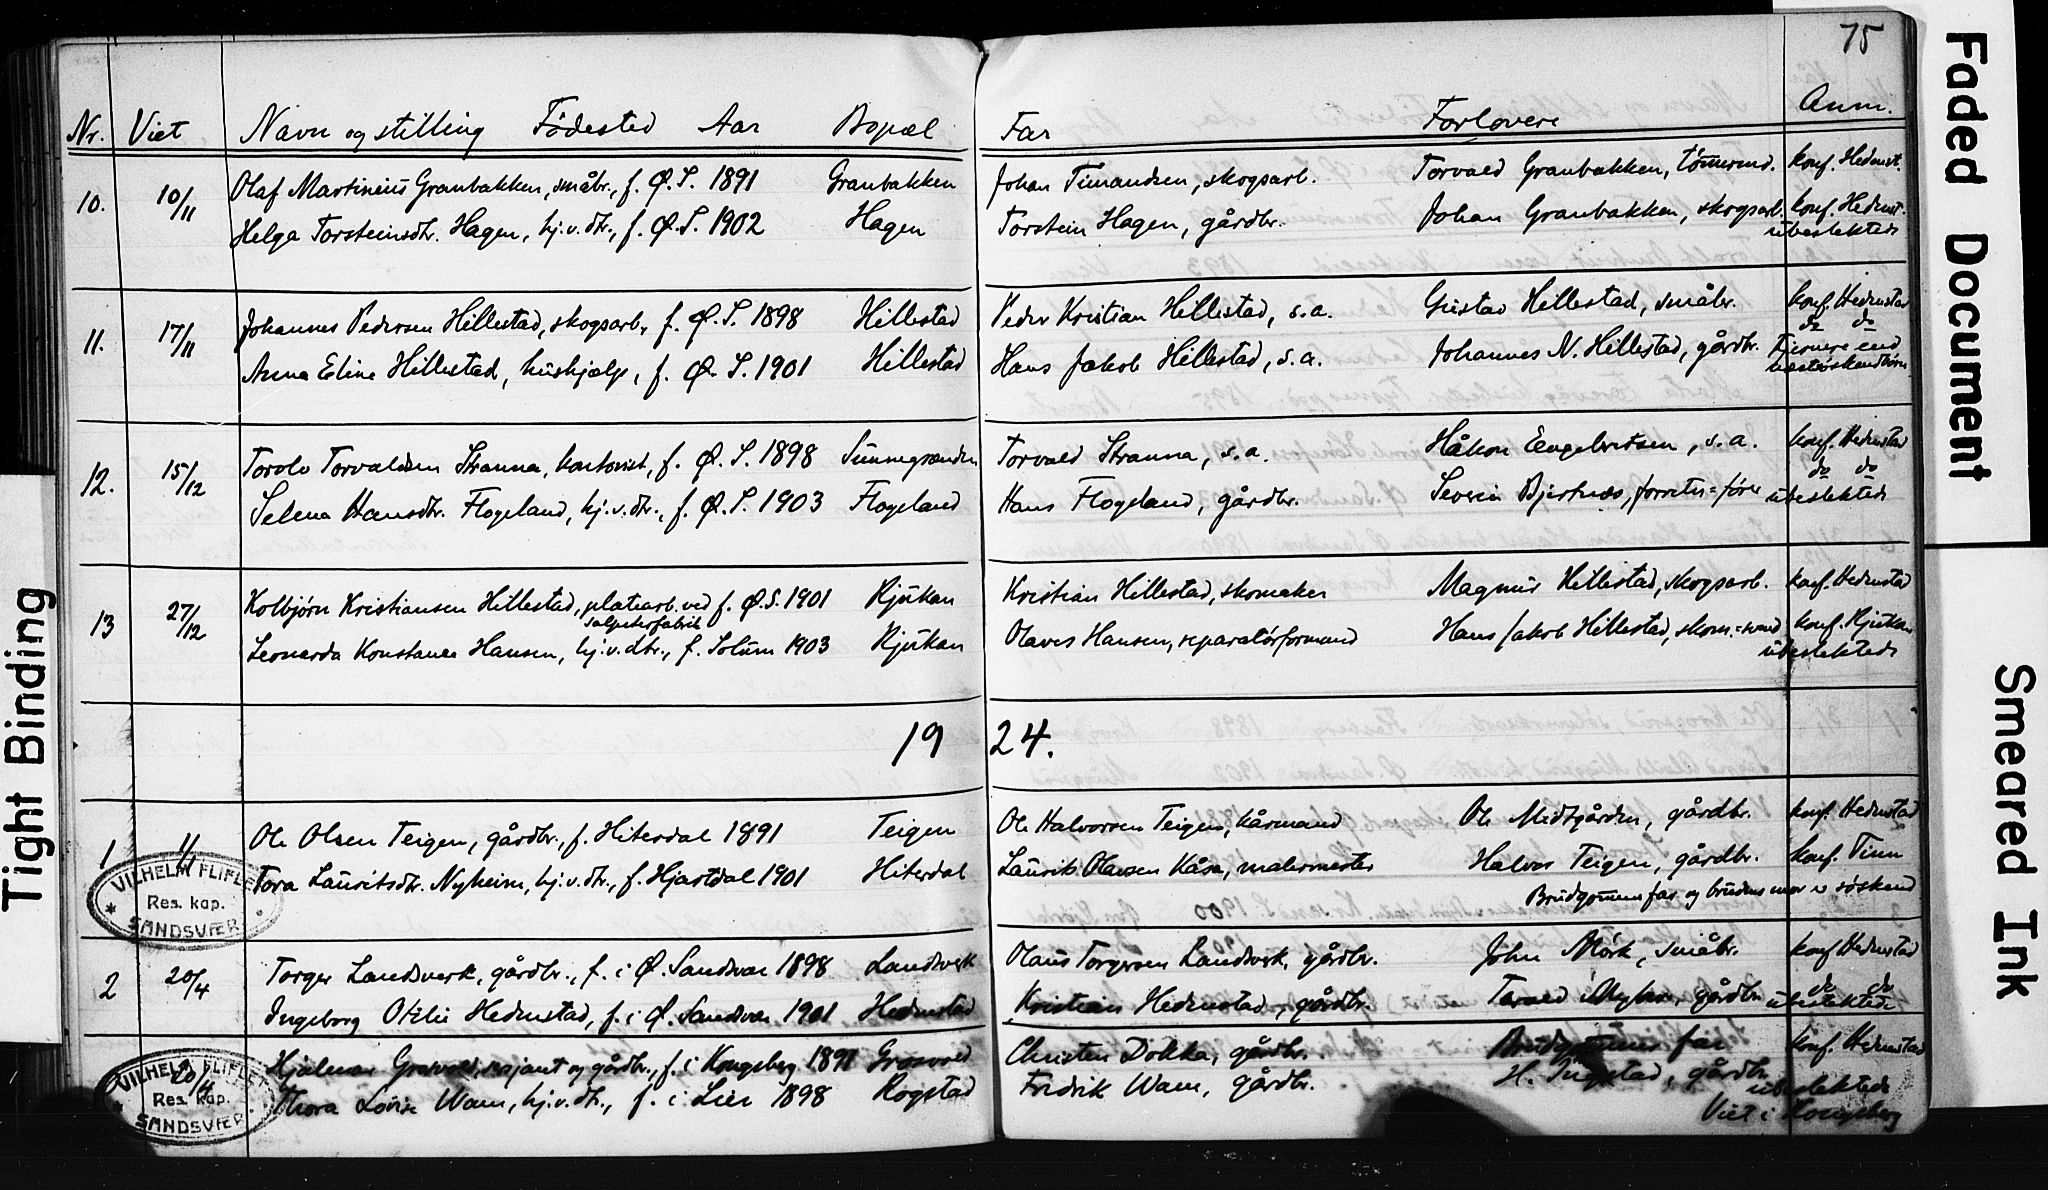 75
Nr. Viet Navn og stilling Fødested Aar Bopæl Far Forlovere Anm.
10. 10/11 Olaf Martinius Granbakken, småbr., f. Ø.S. 1891 Granbakken Johan Simandsen, skogsarb. Torvald Granbakken, tømmerm. konf. Hedenst.
Helga Torsteinsdtr. Hagen, hj.v.dtr., f. Ø.S. 1902 Hagen Torstein Hagen, gårdbr. Johan Granbakken, skogsarb. konf. Hedenst.
ubeslektede
11. 17/11 Johannes Pedersen Hillestad, skogsarb., f. Ø.S. 1898 Hillestad Peder Kristian Hillestad, s.a. Gustav Hillestad, småbr. konf. Hedenstad
do do
Anna Eline Hillestad, hushjælp, f. Ø.S. 1901 Hillestad Hans Jakob Hillestad, s.a. Johannes N. Hillestad, gårdbr. fjernere end
næstsøskendbørn
12. 15/12 Torolv Torvaldsen Stranna, kontorist, f. Ø.S. 1898 Torvald Stranna, s.a. Håkon Engebretsen, s.a. konf. Hedenstad
do do
Selena Hansdtr. Flogeland, hj.v.dtr., f. Ø.S. 1903 Flogeland Hans Flogeland, gårdbr. Severin Bjertnæs, forretn.=fører ubeslektede
13 27/12 Kolbjørn Kristiansen Hillestad, platearb. ved f. Ø.S. 1901 Rjukan Kristian Hillestad, skomaker Magnus Hillestad, skogsarb. konf. Hedenstad
salpeterfabrik
Leonarda Konstance Hansen, hj.v.dtr., f. Solum 1903 Rjukan Olaves Hansen, reparatørformand Hans Jakob Hillestad, skom.=svend konf. Rjukan
ubeslektede
19 24.
1 1/1 Ole Olsen Teigen, gårdbr., f. Hiterdal 1891 Teigen Ole Halvorsen Teigen, kårmand Ole Midtgården, gårdbr. konf. Hedenstad
Tora Lauritsdtr. Nyheim, hj.v.dtr., f. Hjartdal 1901 Hiterdal Laurits Olavsen Kåsa, malermester Halvor Teigen, gårdbr. konf. Tinn
Brudgommens far og brudens mor er søskend
VILHELM FLIFLET
Res. kap.
SANDSVÆR
2 20/4 Torger Landsverk, gårdbr., f. i Ø. Sandsvær 1898 Landsverk Olaus Torgersen Landsverk, gårdbr. John Mørk, småbr. konf Hedenstad
do do
Ingeborg Otelie Hedenstad, f. i Ø. Sandsvær 1901 Hedenstad Kristian Hedenstad, gårdbr. Torvald Myhre, gårdbr. ubeslektede
20/4 Hjalmar Grosvold, serjant og gårdbr., f. i Kongsberg 1891 Grosvold Christen Dokka, gårdbr. Brudgommens far konf. Hedenstad
Thora Lovise Wam, hj.v.dtr., f. i Lier 1898 Rogstad Fredrik Wam, gårdbr. H. Ingestad, gårdbr.
ubeslektede
Viet i Kongsberg
VILHELM FLIFLET
Res. kap.
SANDSVÆR
Tight Binding
Faded Document
Smeared Ink